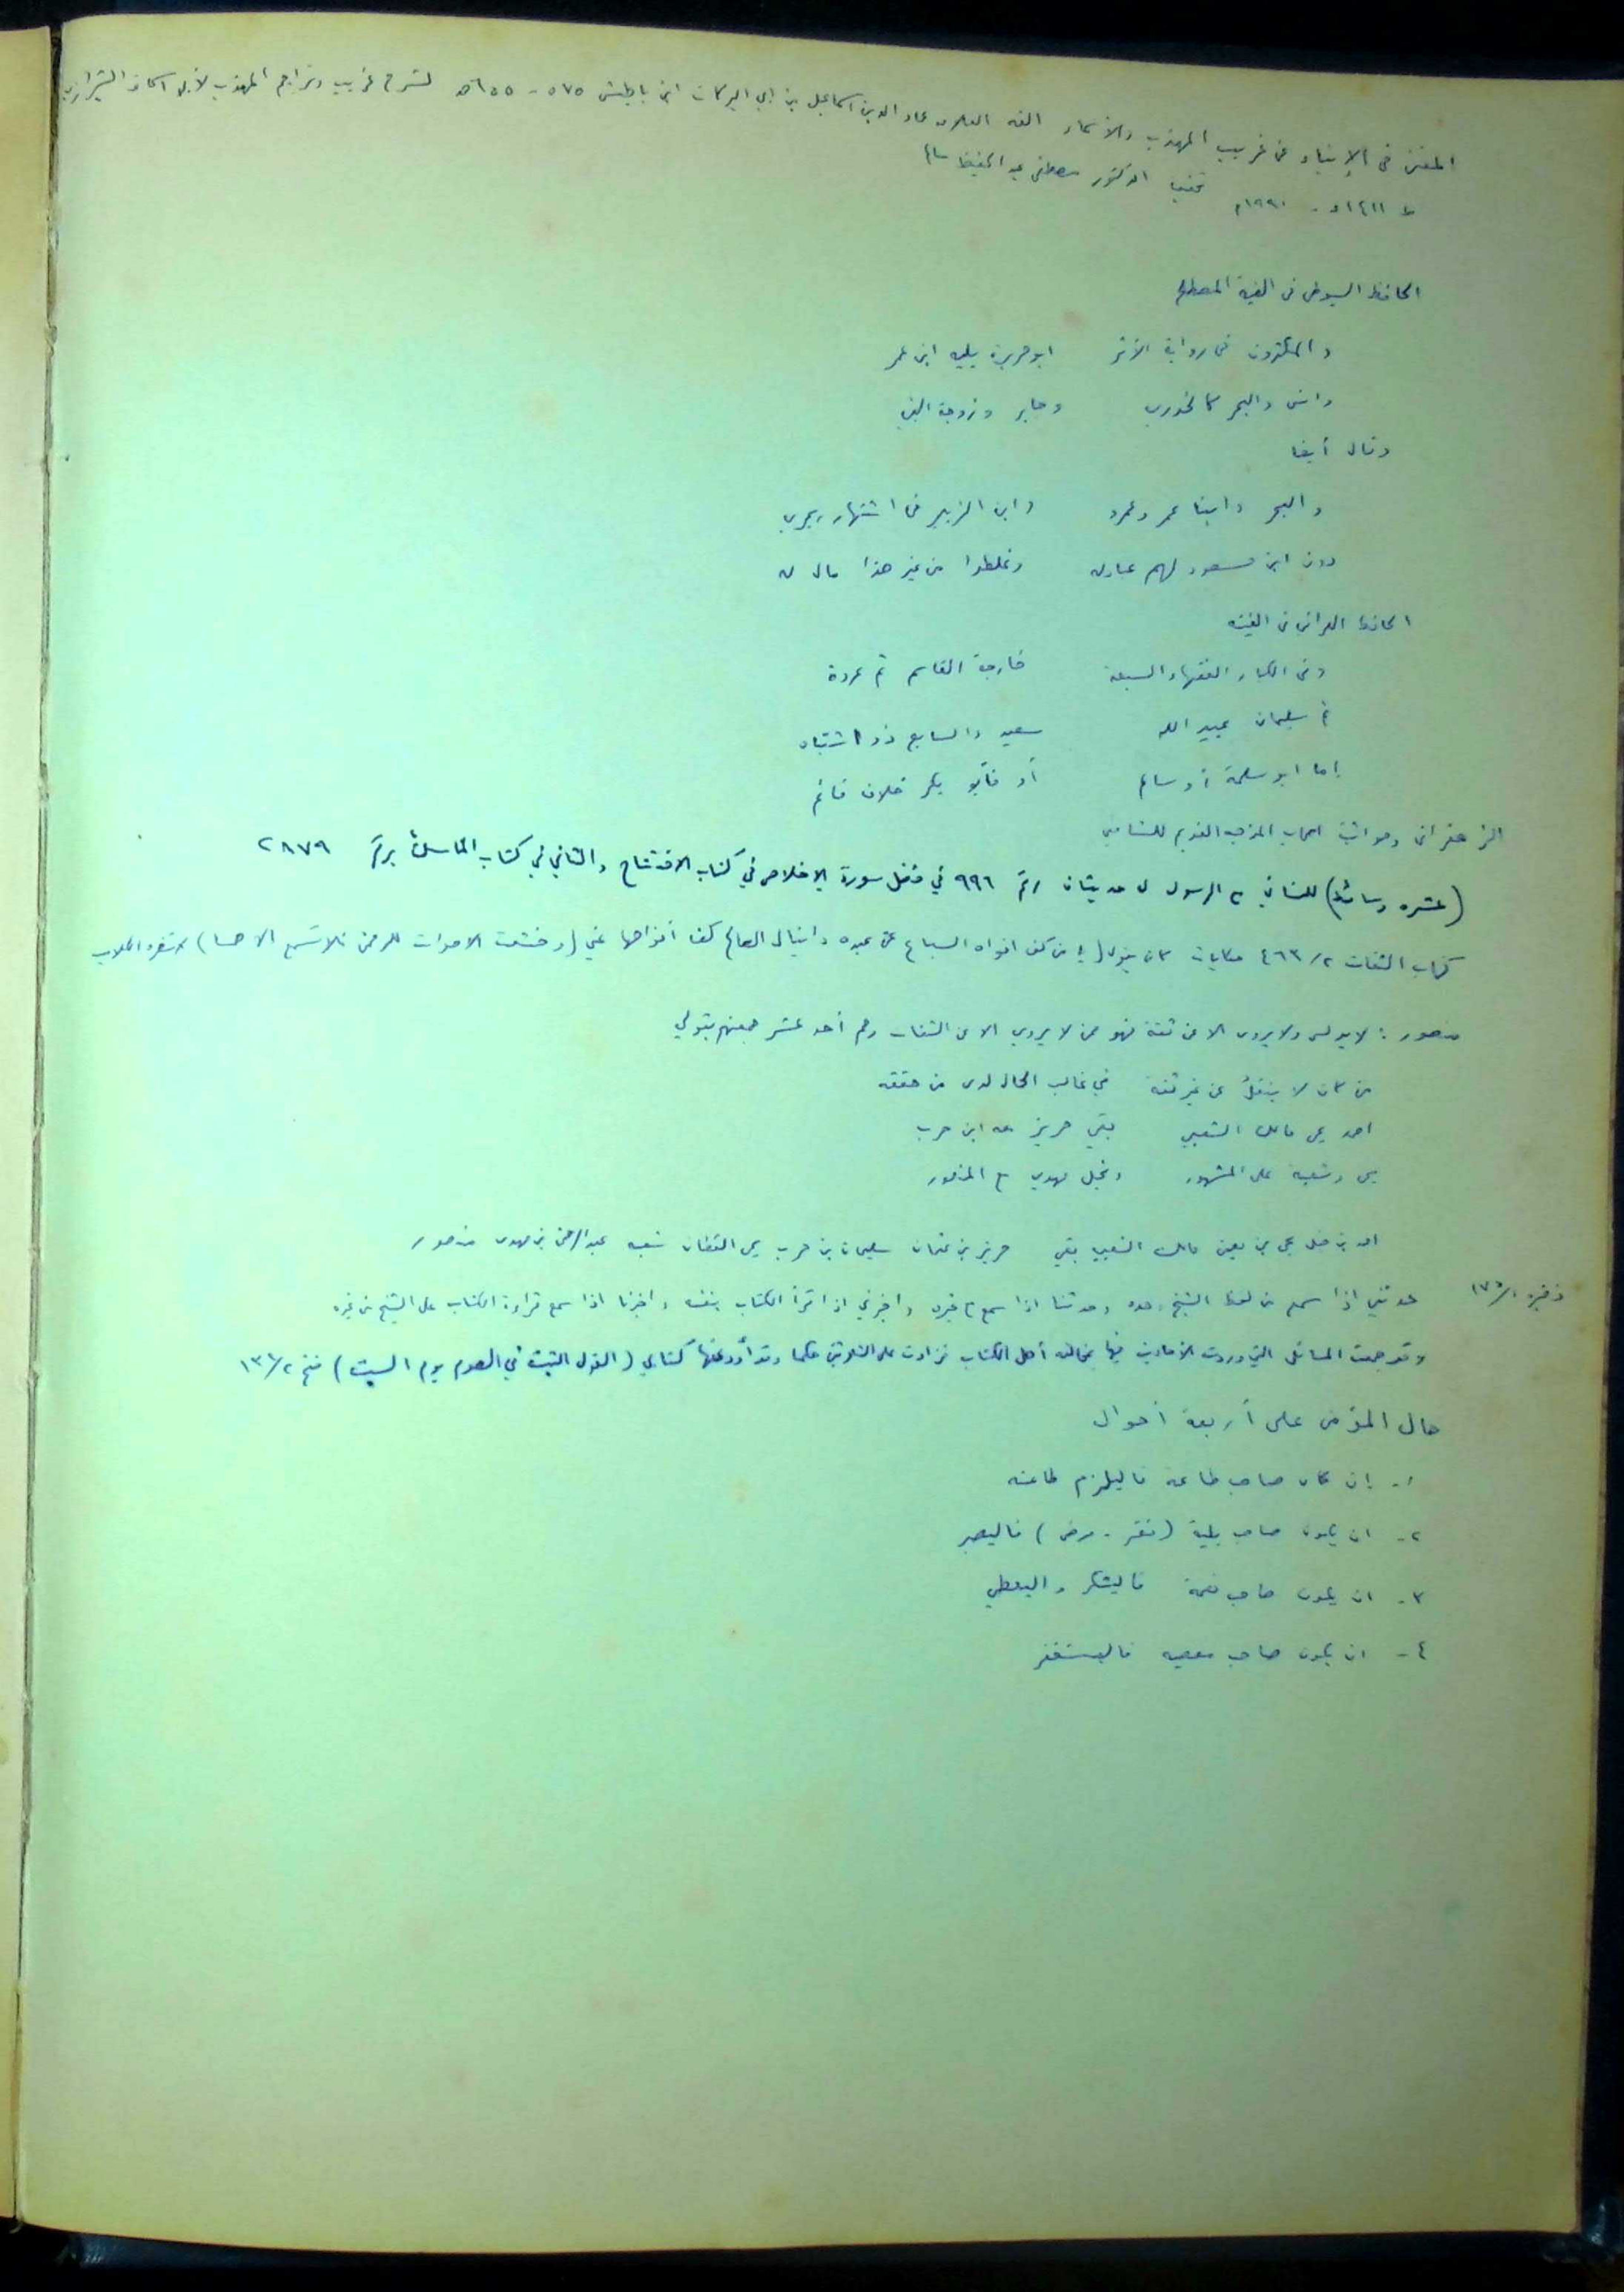 المغني في الإنباء عن غريب المهذب والأسماء الفه العلامه عماد الدين اسماعيل بن ابي البركات ابن باطيش ٥٧٥ - ٦٥٥ هـ لشرح غريب وتراجم المهذب لأبي اسحاق الشيرازي
ط ١٤١١ هـ - ١٩٩١ م تحقيق الدكتور مصطفى عبد الحفيظ سالم
الحافظ السيوطي في الفية المصطلح
والمكثرون في رواية الأثر ابو هريرة يليه ابن عمر
وانس والبحر كالخدري وجابر وزوجة النبي
وقال أيضا
والبحر وابنا عمر وعمرو وابن الزبير في اشتهار يجري
دون ابن مسعود لهم عبادله وغلطوا من غير هذا مال له
الحافظ العراقي في الفيته
وفي الكبار الفقهاء السبعة خارجة القاسم ثم عروة
ثم سليمان عبيد الله سعيد والسابع ذو اشتباه
إما ابو سلمة أو سالم أو فأبو بكر خلاف قائم
الزعفراني وهو اثبت اصحاب المذهب القديم للشافعي
(عشره وسائط) للنسائي الرسول حديثان رقم ٩٩٦ في فضل سورة الإخلاص في كتاب الافتتاح والثاني في كتاب المناسك برقم ٢٨٧٩
كتاب الثقات ٤٦٣/٢ حكايات كان يقول (يا من كف افواه السباع عن عبده دانيال الصالح كف افواهها عني (وخشعت الاصوات للرحمن فلا تسمع الا همسا)
منصور : لا يدلس ولا يروي الا عن ثقة فهو ممن لا يروي الا عن الثقات وهم أحد عشر جمعتهم بقولي
من كان لا ينقل عن غير ثقه في غالب الحال لدى من حققه
احمد يحي مالك الشعبي بقي حريز مه ابن حرب
يحي وشعبة على المشهور ونجل مهدي مع المنصور
احمد بن حنبل يحي بن معين مالك الشعبي بقي حريز بن عثمان سليمان بن حرب يحي القطان شعبه عبد الرحمن بن مهدي منصور
ذخيرة ١٧٥/١ حدثني اذا سمع من لفظ الشيخ وحده وحدثنا اذا سمع مع غيره واخبرني اذا قرأ الكتاب بنفسه واخبرنا اذا سمع قراءة الكتاب على الشيخ من غيره
وقد جمعت المسائل التي وردت الأحاديث فيها بمخالفة أهل الكتاب فزادت على الثلاثين حكما وقد أودعتها كتابي (القول الثبت في الصوم يوم السبت) فتح ١٣٦/٢
حال المؤمن على أربعة أحوال
١- إن كان صاحب طاعة فاليلزم طاعته
٢- ان يكون صاحب بلية (فقر - مرض) فاليصبر
٣- ان يكون صاحب نعمة فاليشكر واليعطي
٤- ان يكون صاحب معصيه فاليستغفر